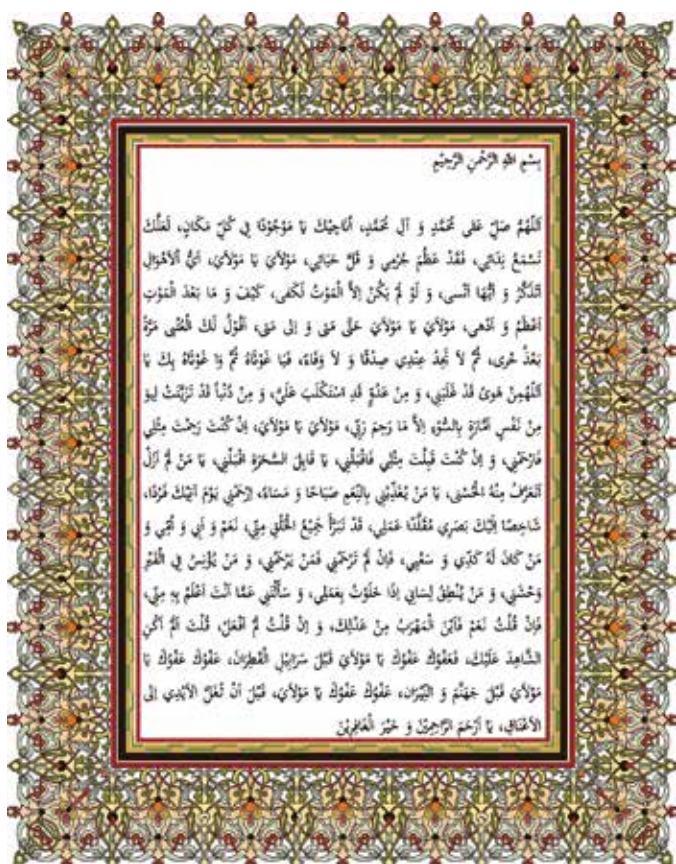 بِسْمِ اللهِ الرَّحْمنِ الرَّحِيْمِ
اَللّٰهُمَّ صَلِّ عَلى مُحَمَّدٍ وَ آلِ مُحَمَّدٍ، أُنَاجِيْكَ يَا مَوْجُوْدًا فِي كُلِّ مَكَانٍ، لَعَلَّكَ
تَسْمَعُ نِدَائِي، فَقَدْ عَظُمَ جُرْمِي وَ قَلَّ حَيَائِي، مَوْلاَيَ يَا مَوْلاَيَ، أَيُّ الْأَهْوَالِ
أَتَذَكَّرُ وَ أَيُّهَا أَنْسى، وَ لَوْ لَمْ يَكُنْ إِلاَّ الْمَوْتُ لَكَفى، كَيْفَ وَ مَا بَعْدَ الْمَوْتِ
أَعْظَمُ وَ أَدْهى، مَوْلاَيَ يَا مَوْلاَيَ حَتَّى مَتى وَ إِلى مَتى، أَقُوْلُ لَكَ الْعُتْبى مَرَّةً
بَعْدَ خْرى، ثُمَّ لاَ تَجِدُ عِنْدِي صِدْقًا وَ لاَ وَفَاءً، فَيَا غَوْثَاهُ ثُمَّ وَا غَوْثَاهُ بِكَ يَا
اَللّٰهُمِنْ هَوىً قَدْ غَلَبَنِي، وَ مِنْ عَدُوٍّ قَدِ اسْتَكْلَبَ عَلَيَّ، وَ مِنْ دُنْيَاً قَدْ تَزَيَّنَتْ لِيوَ
مِنْ نَفْسٍ أَمَّارَةٍ بِالسُّوْءِ، إِلاَّ مَا رَحِمَ رَبِّي، مَوْلاَيَ يَا مَوْلاَيَ، إِنْ كُنْتَ رَحِمْتَ مِثْلِي
فَارْحَمْنِي، وَ إِنْ كُنْتَ قَبِلْتَ مِثْلِي فَاقْبَلْنِي، يَا قَابِلَ السَّحَرَةِ اقْبَلْنِي، يَا مَنْ لَمْ أَزَلْ
أَتَعَرَّفُ مِنْهُ الْحُسْنى، يَا مَنْ يُغَذِّيْنِي بِالنِّعَمِ صَبَاحًا وَ مَسَاءً، اِرْحَمْنِي يَوْمَ آتِيْكَ فَرْدًا،
شَاخِصًا إِلَيْكَ بَصَرِي مُقَلَّدًا عَمَلِي، قَدْ تَبَرَّأَ جَمِيْعُ الْخَلْقِ مِنِّي، نَعَمْ وَ أَبِي وَ أُمِّي وَ
مَنْ كَانَ لَهُ كَدِّي وَ سَعْيِي، فَإِنْ لَمْ تَرْحَمْنِي فَمَنْ يَرْحَمُنِي، وَ مَنْ يُؤْنِسُ فِي الْقَبْرِ
وَحْشَتِي، وَ مَنْ يُنْطِقُ لِسَانِي إِذَا خَلَوْتُ بِعَمَلِي، وَ سَأَلْتَنِي عَمَّا أَنْتَ أَعْلَمُ بِهِ مِنِّي،
فَإِنْ قُلْتُ نَعَمْ فَأَيْنَ الْمَهْرَبُ مِنْ عَدْلِكَ، وَ إِنْ قُلْتُ لَمْ أَفْعَلْ، قُلْتَ أَلَمْ أَكُنِ
الشَّاهِدَ عَلَيْكَ، فَعَفْوُكَ عَفْوُكَ يَا مَوْلاَيَ قَبْلَ سَرَابِيْلِ الْقَطِرَانِ، عَفْوُكَ عَفْوُكَ يَا
مَوْلاَيَ قَبْلَ جَهَنَّمَ وَ النِّيْرَانِ، عَفْوُكَ عَفْوُكَ يَا مَوْلاَيَ، قَبْلَ أَنْ تُغَلَّ الْأَيْدِي إِلَى
الْأَعْنَاقِ، يَا أَرْحَمَ الرَّاحِمِيْنَ وَ خَيْرَ الْغَافِرِيْنَ